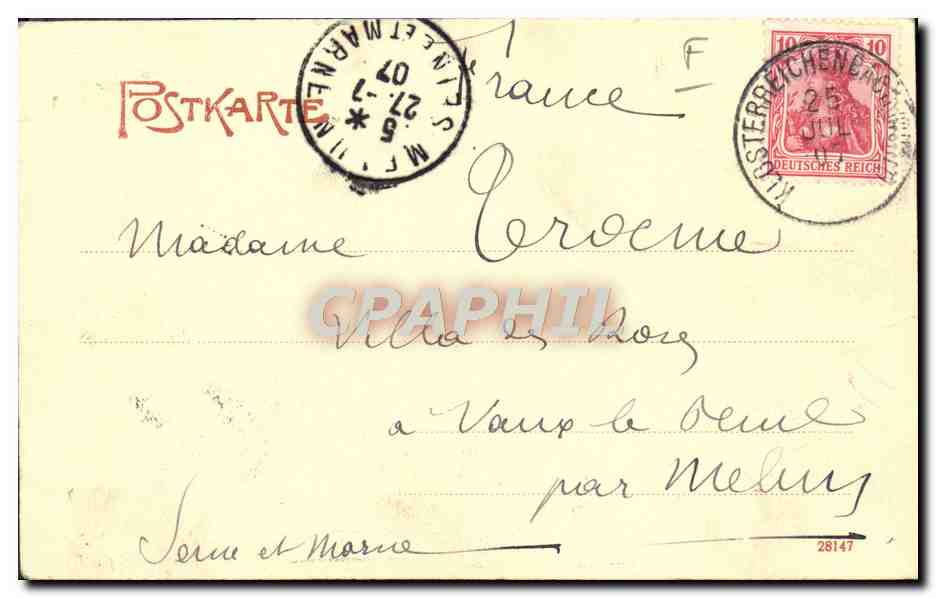 POSTKARTE
France
F
10 10
DEUTSCHES REICH
KLOSTERREICHENBACH
25
JUL
07
MELUN * SEINE ET MARNE
5
27 - 7
07
Madame Trocme
CPAPHIL
Villa des Roses
à Vaux le Penil
par Melun
Seine et Marne
28147